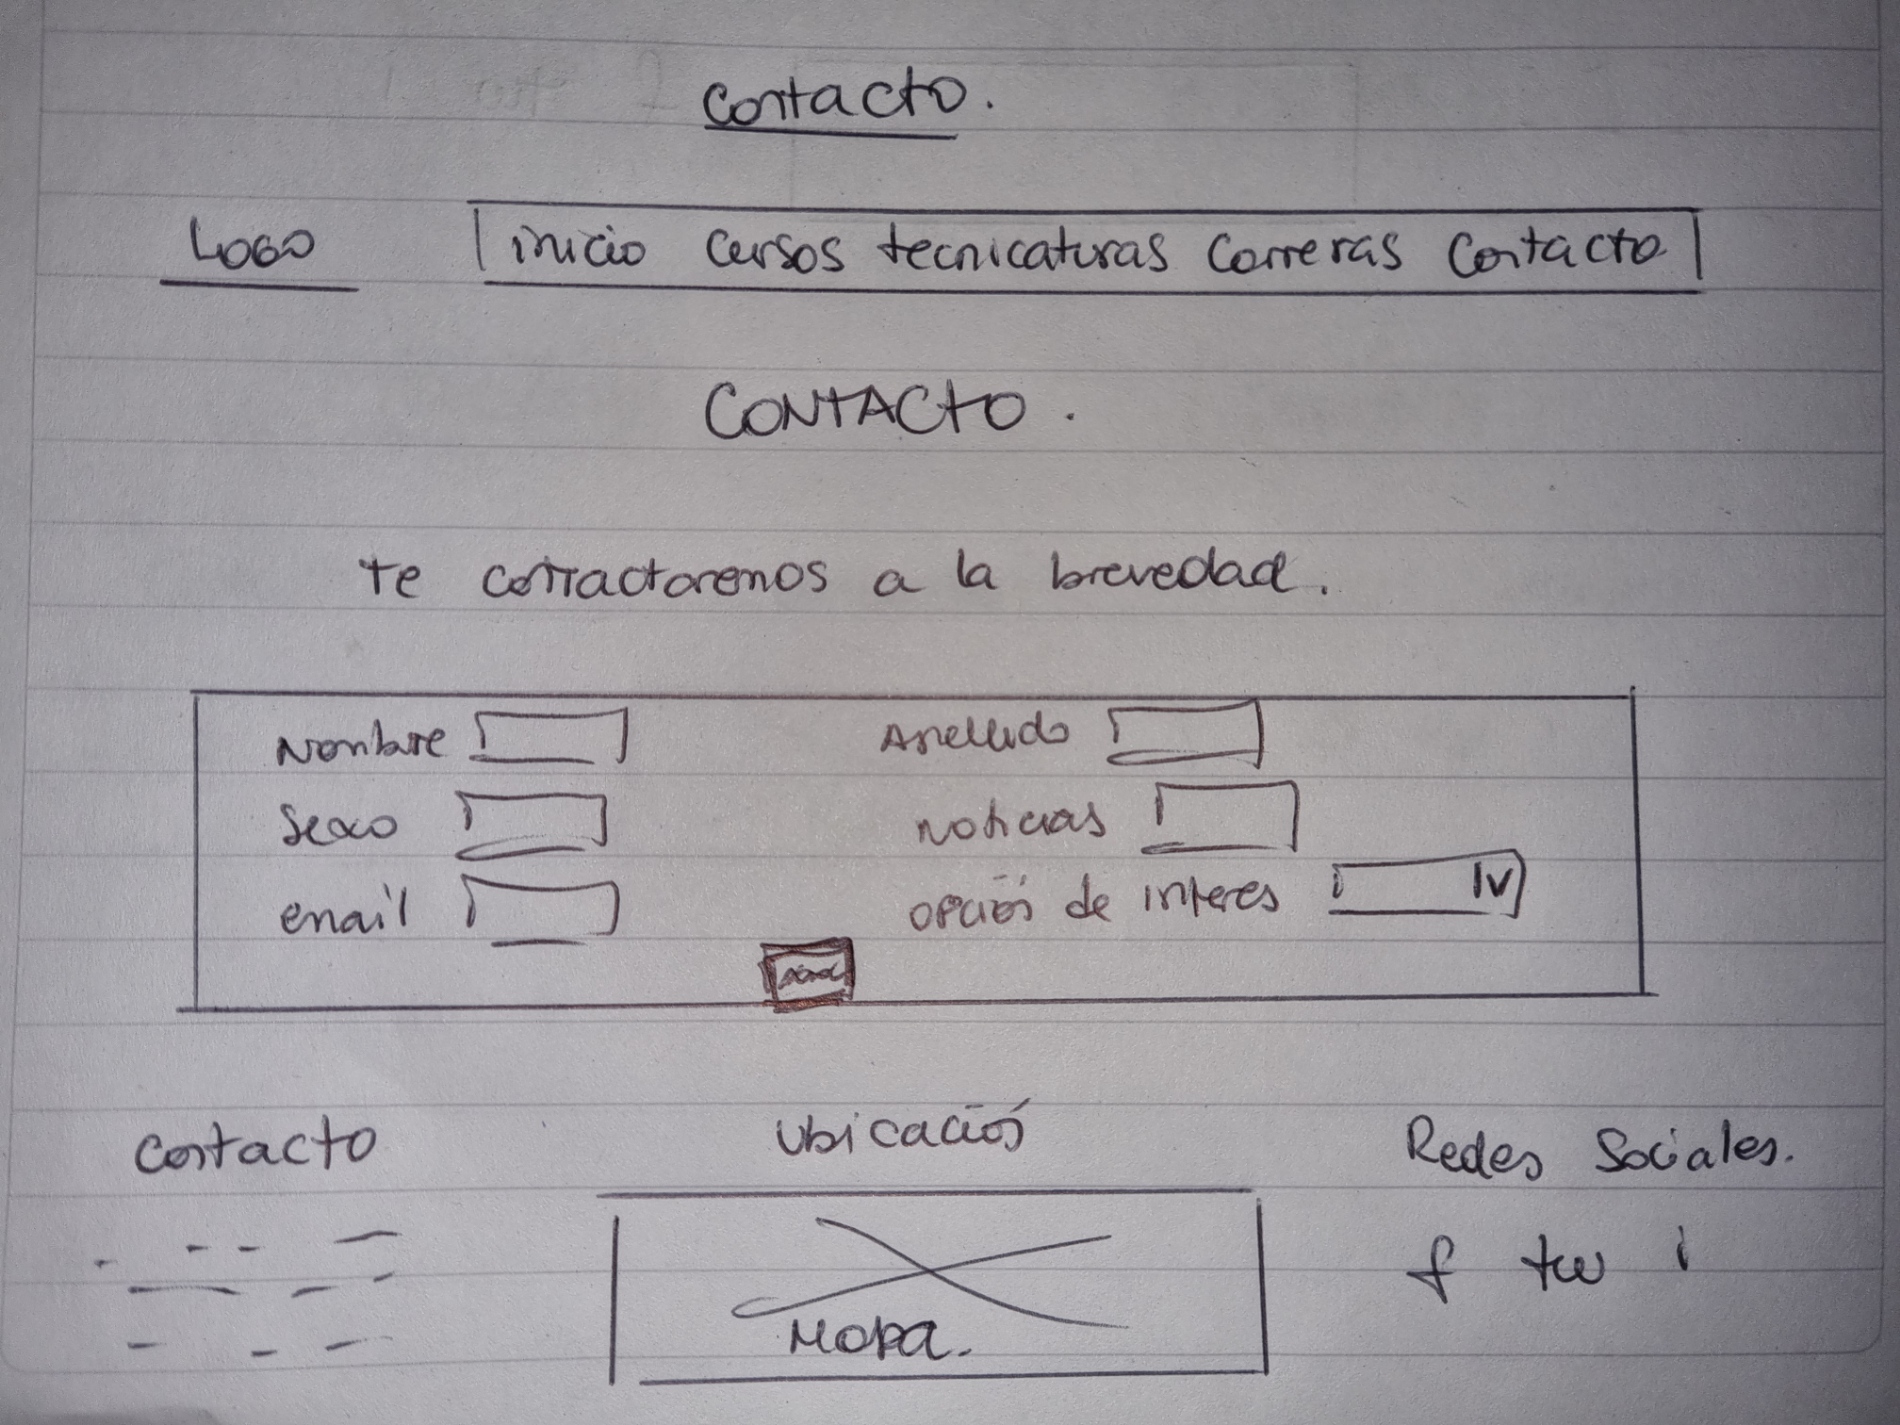 Contacto.
Logo inicio cursos tecnicaturas carreras contacto
CONTACTO.
te contactaremos a la brevedad.
Nombre Apellido
Sexo noticias
email opción de interes
Contacto Ubicación Redes Sociales.
f tw i
Mapa.